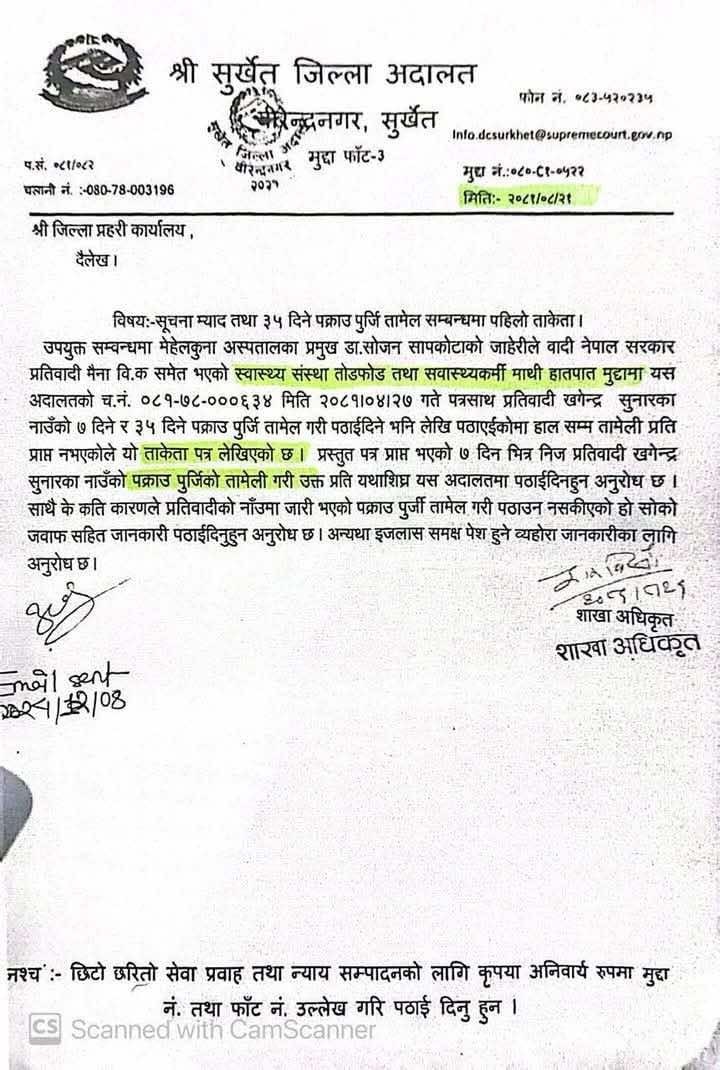 श्री सुर्खेत जिल्ला अदालत
वीरेन्द्रनगर, सुर्खेत
मुद्दा फाँट-3
सुर्खेत जिल्ला अदालत
वीरेन्द्रनगर
२०२१
फोन नं. ०८३-५२०२३५
Info.dcsurkhet@supremecourt.gov.np
प.सं. ०८१/०८२
चलानी नं. :-080-78-003196
मुद्दा नं.:०८०-C१-०५२२
मितिः- २०८१/०८/२१
श्री जिल्ला प्रहरी कार्यालय ,
दैलेख ।
विषयः-सूचना म्याद तथा ३५ दिने पक्राउ पुर्जि तामेल सम्बन्धमा पहिलो ताकेता ।
उपयुक्त सम्वन्धमा मेहेलकुना अस्पतालका प्रमुख डा.सोजन सापकोटाको जाहेरीले वादी नेपाल सरकार
प्रतिवादी मैना वि.क समेत भएको स्वास्थ्य संस्था तोडफोड तथा सवास्थ्यकर्मी माथी हातपात मुद्दामा यस
अदालतको च.नं. ०८१-७८-०००६३४ मिति २०८१।०४।२७ गते पत्रसाथ प्रतिवादी खगेन्द्र सुनारका
नाउँको ७ दिने र ३५ दिने पक्राउ पुर्जि तामेल गरी पठाईदिने भनि लेखि पठाएईकोमा हाल सम्म तामेली प्रति
प्राप्त नभएकोले यो ताकेता पत्र लेखिएको छ । प्रस्तुत पत्र प्राप्त भएको ७ दिन भित्र निज प्रतिवादी खगेन्द्र
सुनारका नाउँको पक्राउ पुर्जिको तामेली गरी उक्त प्रति यथाशिघ्र यस अदालतमा पठाईदिनहुन अनुरोध छ ।
साथै के कति कारणले प्रतिवादीको नाँउमा जारी भएको पक्राउ पुर्जी तामेल गरी पठाउन नसकीएको हो सोको
जवाफ सहित जानकारी पठाईदिनुहुन अनुरोध छ । अन्यथा इजलास समक्ष पेश हुने व्यहोरा जानकारीका लागि
अनुरोध छ ।
शाखा अधिकृत
शाखा अधिकृत
Email sent
नश्च :- छिटो छरितो सेवा प्रवाह तथा न्याय सम्पादनको लागि कृपया अनिवार्य रुपमा मुद्दा
नं. तथा फाँट नं. उल्लेख गरि पठाई दिनु हुन ।
CS Scanned with CamScanner